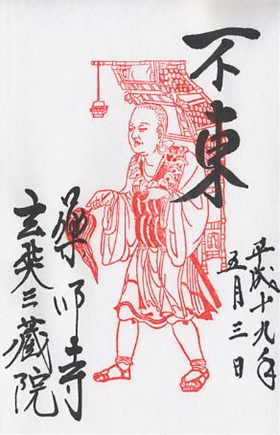 不東
平成十九年
五月三日
薬師寺
玄奘三蔵院